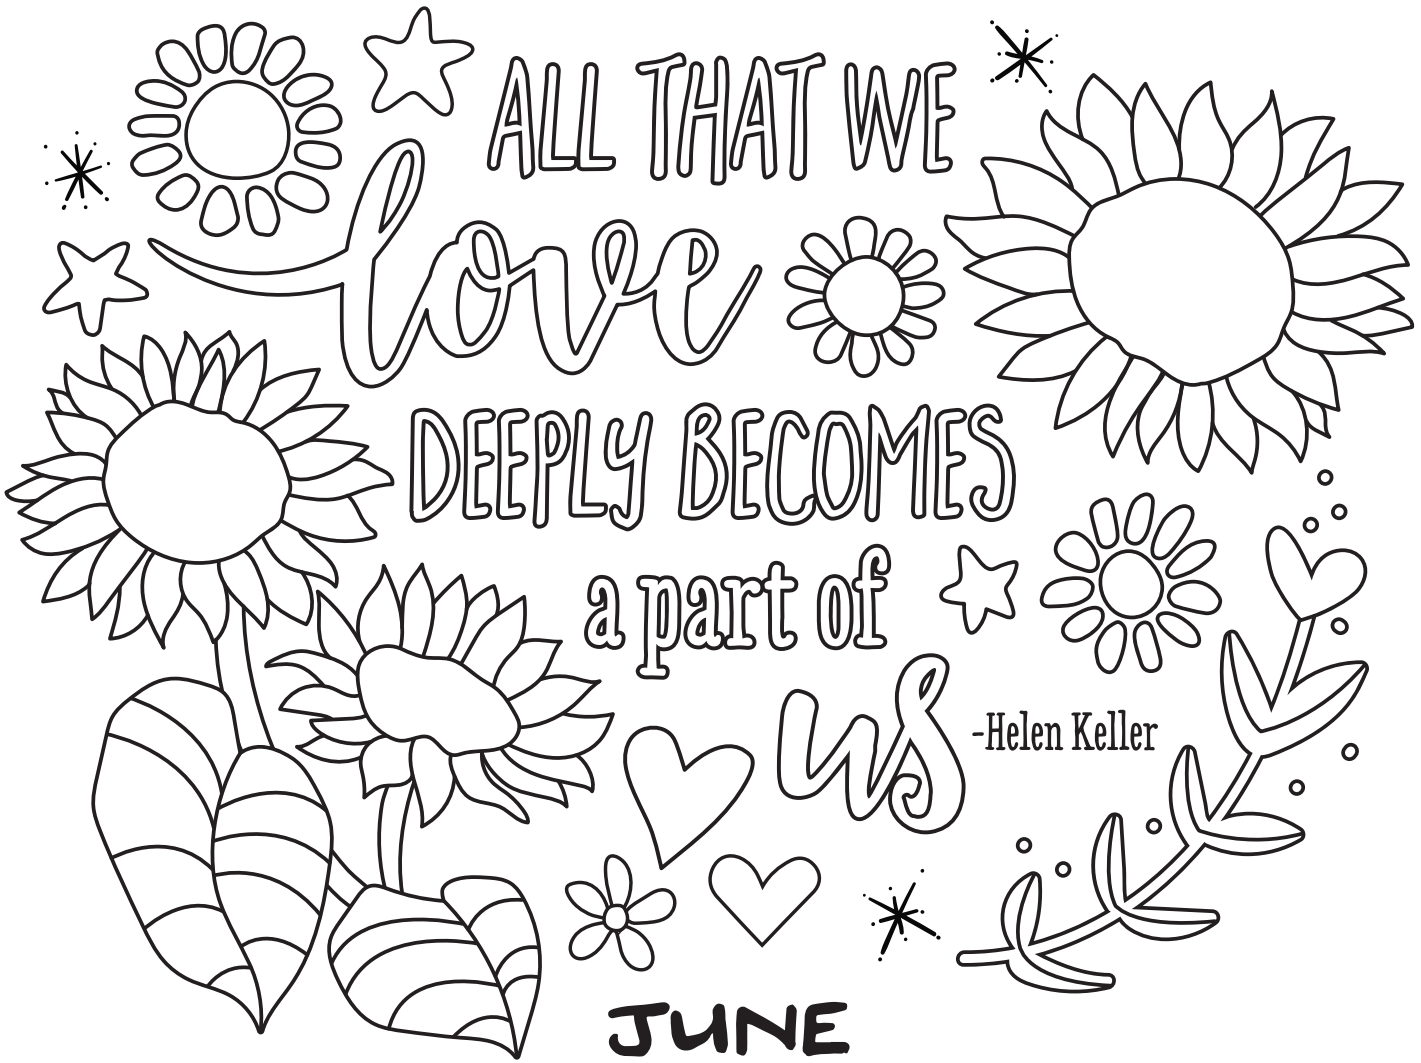 ALL THAT WE
love
DEEPLY BECOMES
a part of
us
-Helen Keller
JUNE